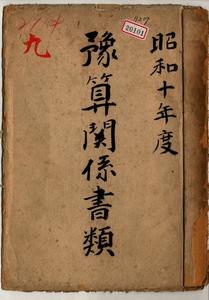 昭和十年度
豫算関係書類
九
20101